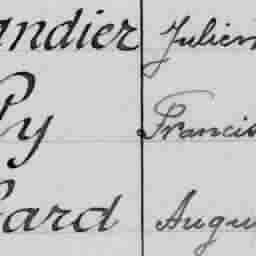 andier Julien
Py Francis
ard Augu